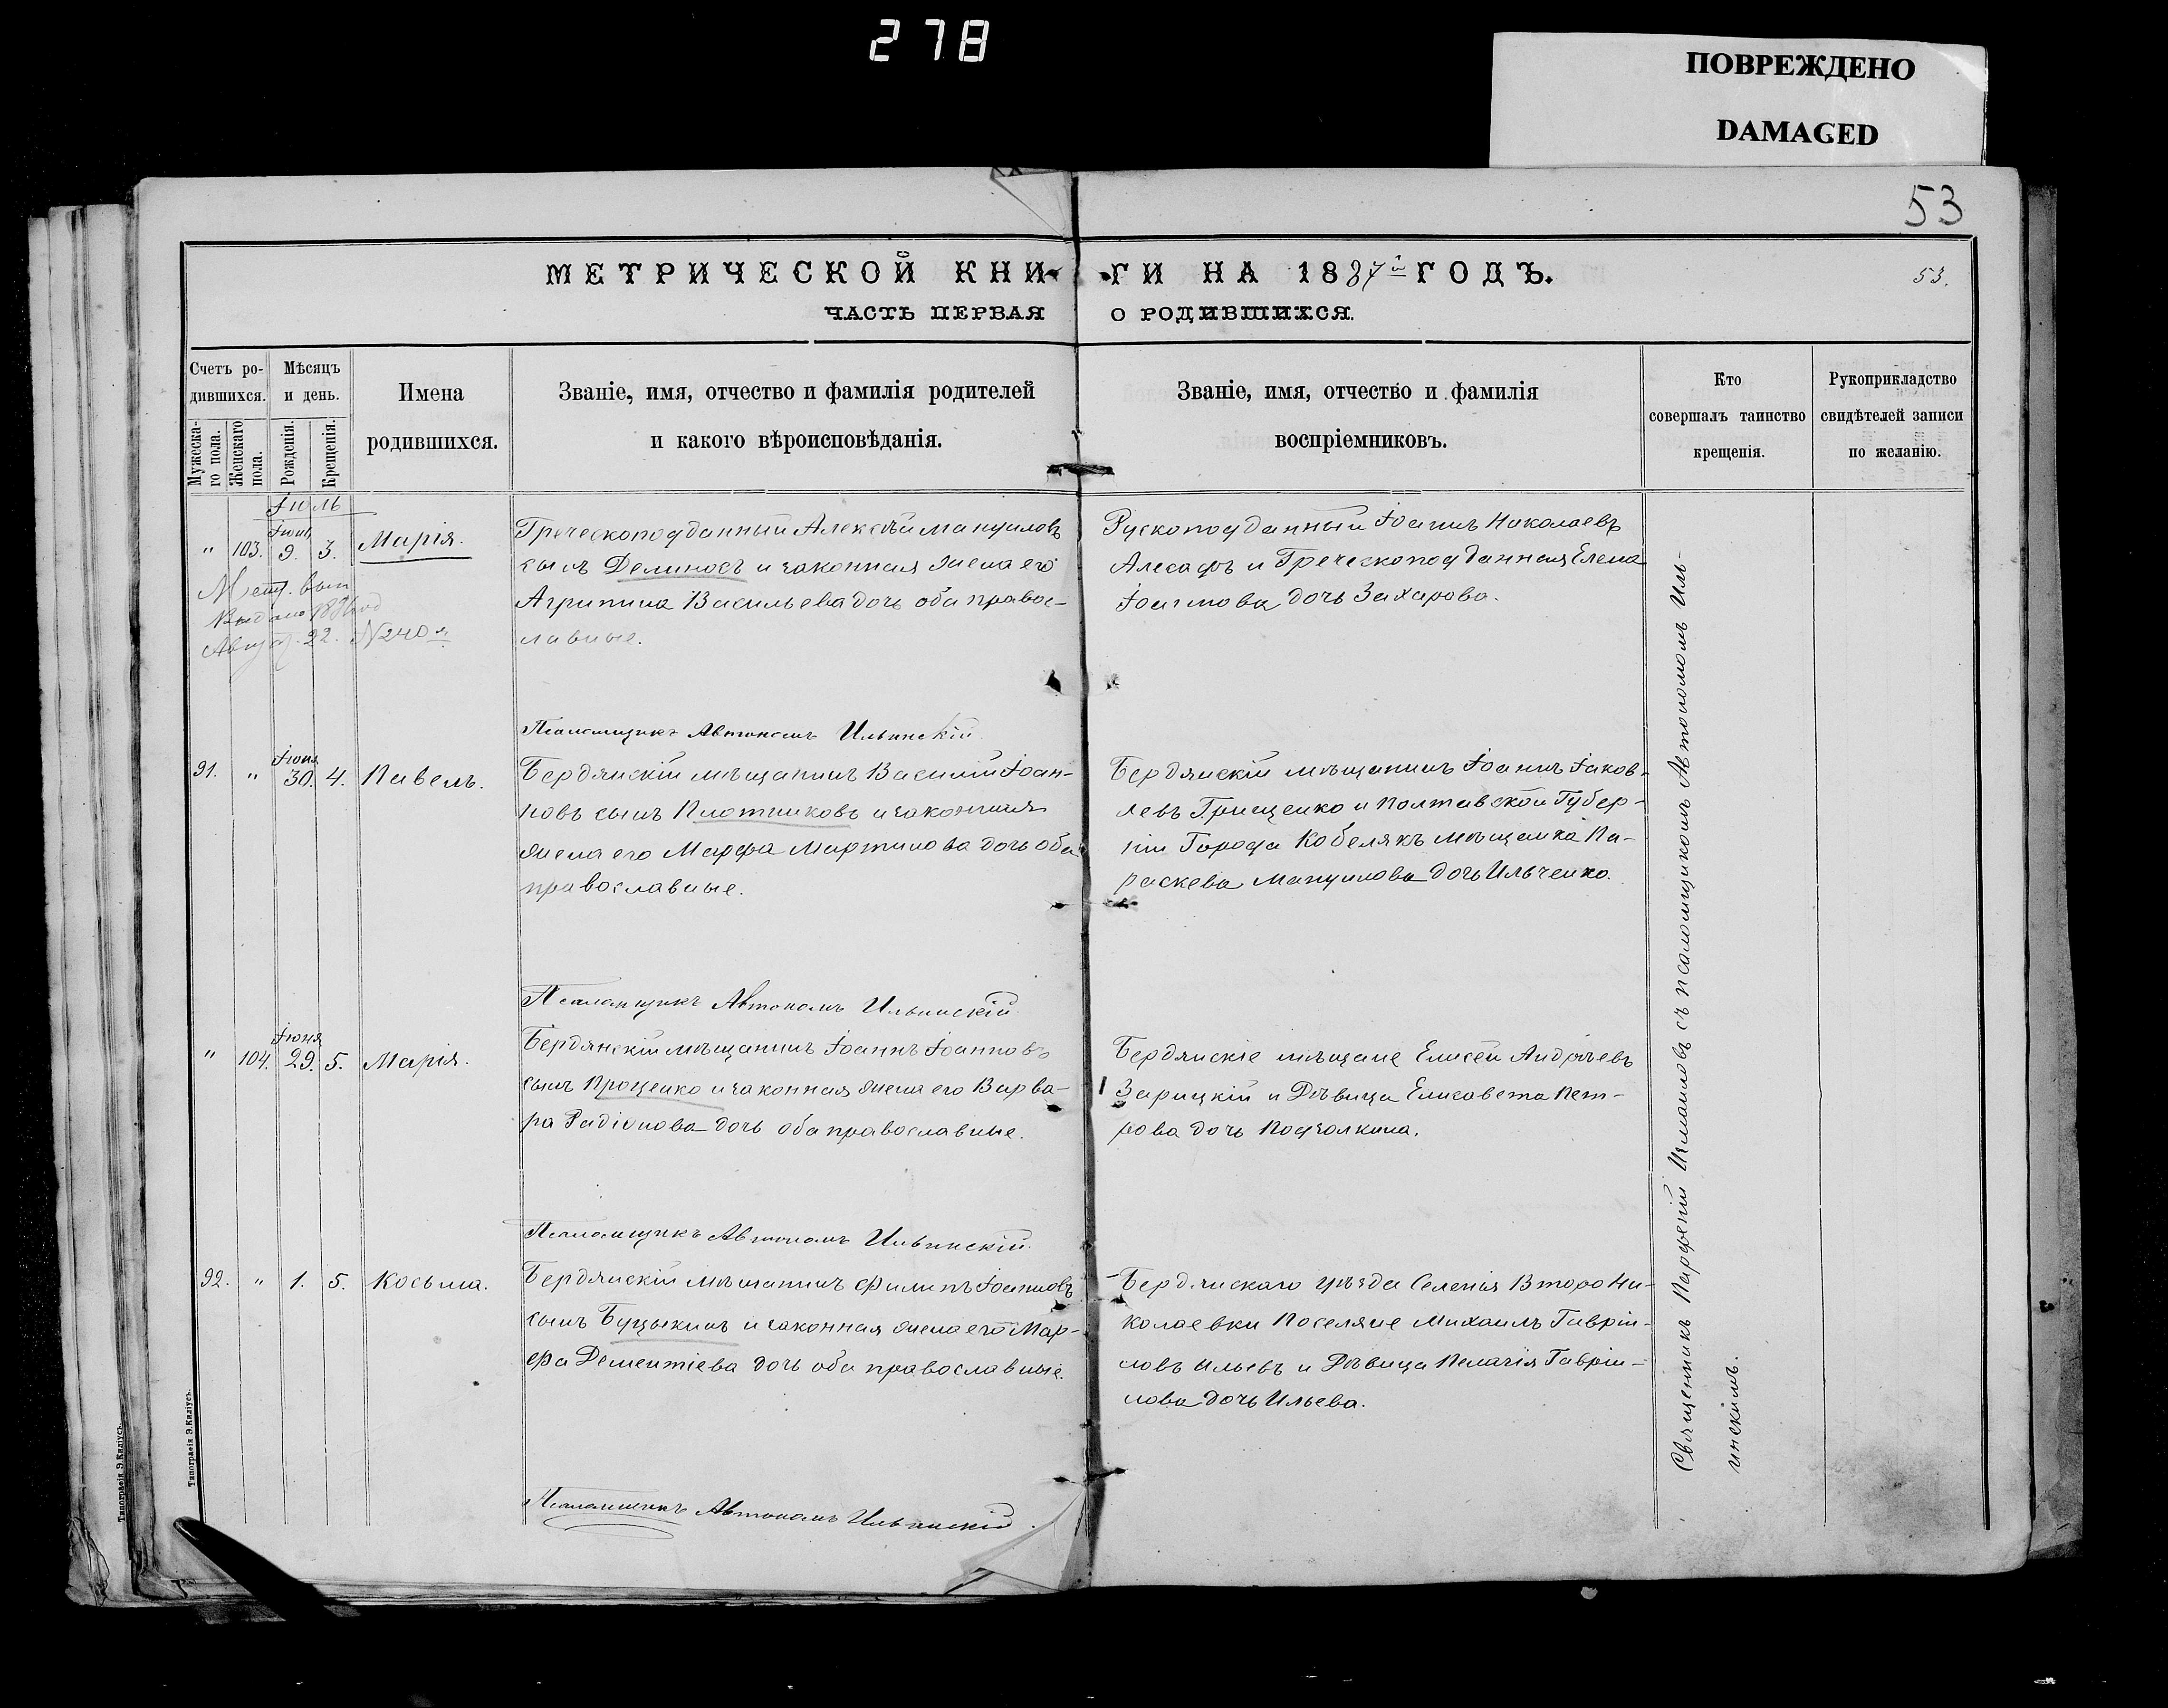 278
ПОВРЕЖДЕНО
DAMAGED
53
МЕТРИЧЕСКОЙ КНИГИ НА 1887й ГОДЪ.
53.
ЧАСТЬ ПЕРВАЯ О РОДИВШИХСЯ.
Счетъ ро-
дившихся.
Мужеска-
го пола.
Женскаго
пола.
Мѣсяцъ
и день.
Рожденія.
Крещенія.
Имена
родившихся.
Званіе, имя, отчество и фамилія родителей
и какого вѣроисповѣданія.
Званіе, имя, отчество и фамилія
воспріемниковъ.
Кто
совершалъ таинство
крещенія.
Рукоприкладство
свидѣтелей записи
по желанію.
Іюль
" 103. Іюня 9. 3. Марія.
Метр. вып
Выдано
Август. 22. N240
Греческоподданный Алексѣй Мануиловъ
сынъ Делиносъ и законная жена его
Агрипина Васильева дочь оба правос-
лавные.
Рускоподданный Іоаннъ Николаевъ
и Греческоподданная Елена
Іоаннова дочь Захарова.
Псаломщикъ Автономъ Ильинскій.
91. " Іюня 30. 4. Павелъ.
Бердянскій мѣщанинъ Василій Іоан-
новъ сынъ Плотниковъ и законная
жена его Марфа Мартинова дочь оба
православные.
Бердянскій мѣщанинъ Іоаннъ Іаков-
левъ Грищенко и Полтавской Губер-
ніи Города Кобелякъ мѣщанка Па-
раскева Мануилова дочь Ильченко.
Псаломщикъ Автономъ Ильинскій.
" 104. Іюня 29. 5. Марія.
Бердянскій мѣщанинъ Іоаннъ Іоанновъ
сынъ Проценко и законная жена его Варва-
ра Радіонова дочь оба православные.
Бердянскіе мѣщане Елисей Андреевъ
Зарицкій и Дѣвица Елисавета Пет-
рова дочь Подзолкина.
Псаломщикъ Автономъ Ильинскій.
92. " 1. 5. Косьма.
Бердянскій мѣщанинъ Филипъ Іоанновъ
сынъ Буцыкинъ и законная жена его Мар-
фа Дементіева дочь оба православные.
Бердянскаго уѣзда Селенія Второ Ни-
колаевки Поселяне Михаилъ Гавріи-
ловъ Ильевъ и Дѣвица Пелагія Гавріи-
лова дочь Ильева.
Псаломщикъ Автономъ Ильинскій.
Священникъ Парфеній Измаиловъ съ псаломщикомъ Автономомъ Иль-
инскимъ.
Типографія Э. Киліусъ.
Типографія Э. Киліусъ.